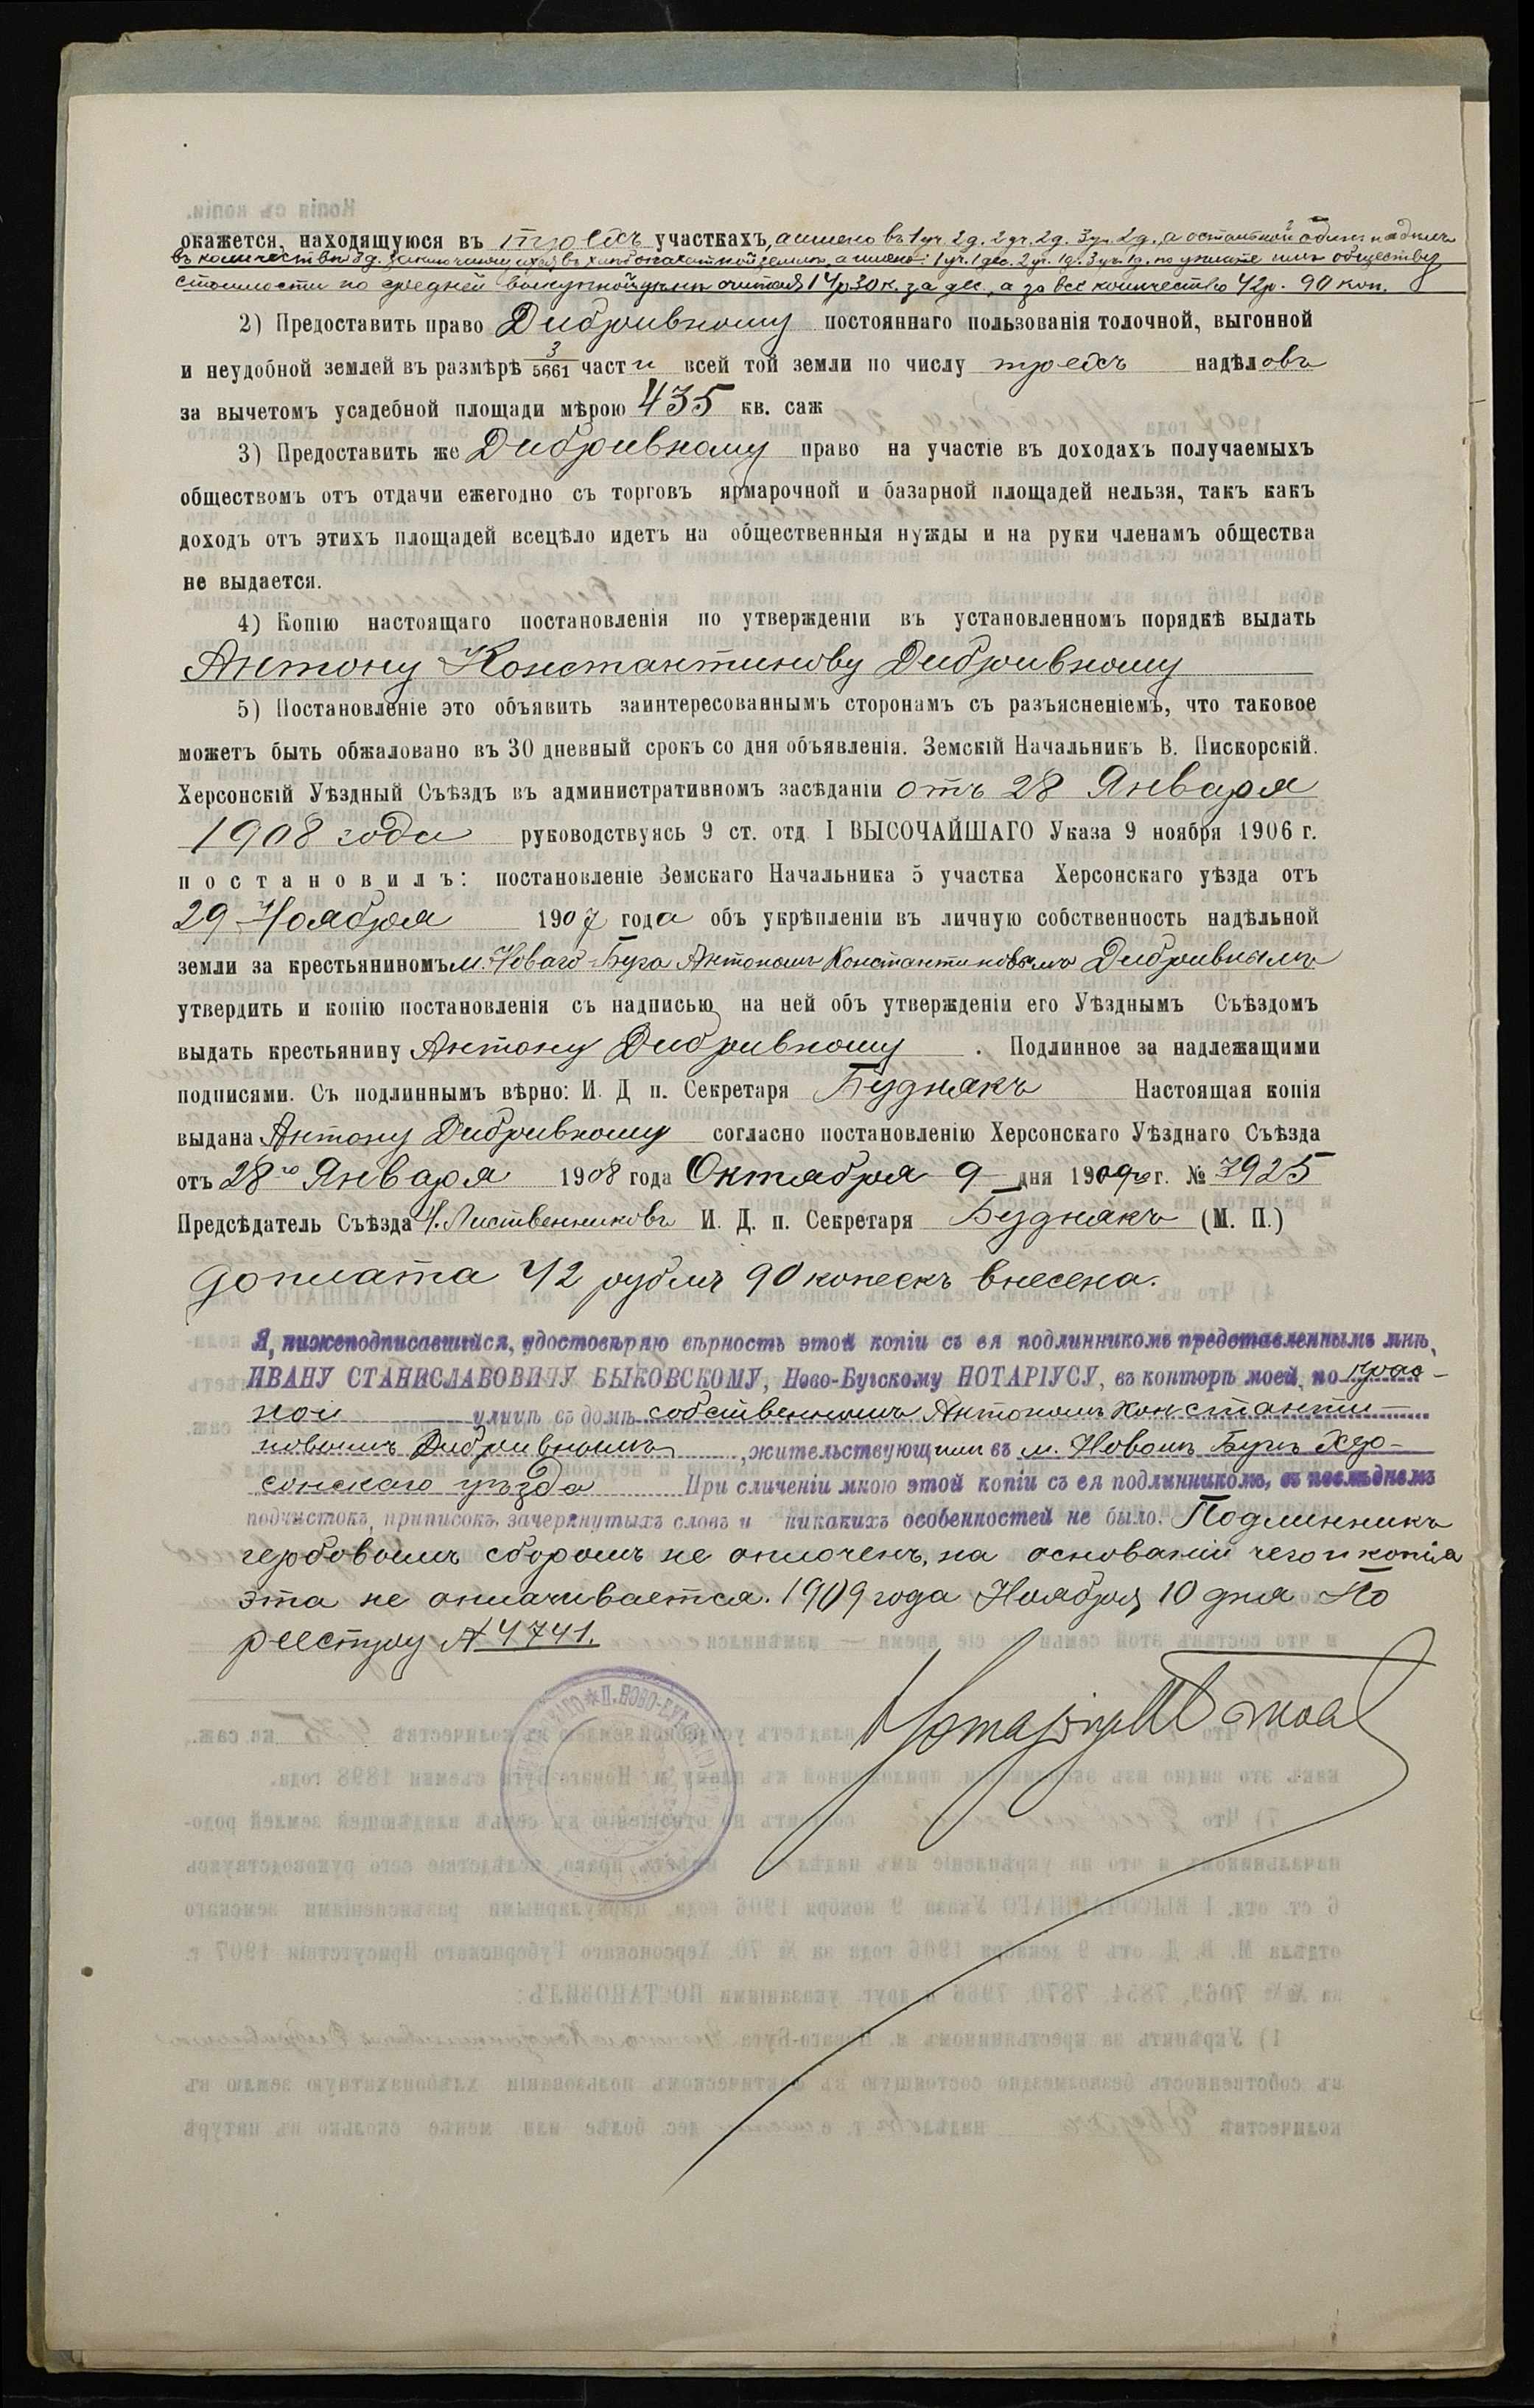 окажется, находящуюся въ трехъ участкахъ, а именно въ 1 уч. 2 д. 2 уч. 2 д. 3 уч. 2 д., а остальной одинъ надѣлъ
въ количествѣ 3 д. заключающуюся въ хлѣбопахатной землѣ, а именно: 1 уч. 1 дес. 2 уч. 1 д. 3 уч. 1 д. по уплатѣ имъ обществу
стоимости по средней выкупной цѣнѣ считая 14 р 30 к. за дес., а за все количество 42 р. 90 коп.
2) Предоставить право Дибривному постояннаго пользованія толочной, выгонной
и неудобной землей въ размѣрѣ 3/5661 части всей той земли по числу трехъ надѣловъ
за вычетомъ усадебной площади мѣрою 435 кв. саж
3) Предоставить же Дибривному право на участіе въ доходахъ получаемыхъ
обществомъ отъ отдачи ежегодно съ торговъ ярмарочной и базарной площадей нельзя, такъ какъ
доходъ отъ этихъ площадей всецѣло идетъ на общественныя нужды и на руки членамъ общества
не выдается.
4) Копію настоящаго постановленія по утвержденіи въ установленномъ порядкѣ выдать
Антону Константинову Дибривному
5) Постановленіе это объявить заинтересованнымъ сторонамъ съ разъясненіемъ, что таковое
можетъ быть обжаловано въ 30 дневный срокъ со дня объявленія. Земскій Начальникъ В. Пискорскій.
Херсонскій Уѣздный Съѣздъ въ административномъ засѣданіи отъ 28 Января
1908 года руководствуясь 9 ст. отд I ВЫСОЧАЙШАГО Указа 9 ноября 1906 г.
постановилъ: постановленіе Земскаго Начальника 5 участка Херсонскаго уѣзда отъ
29 Ноября 1907 года объ укрѣпленіи въ личную собственность надѣльной
земли за крестьяниномъ м. Новаго-Буга Антономъ Константиновымъ Дибривнымъ
утвердить и копію постановленія съ надписью на ней объ утвержденіи его Уѣзднымъ Съѣздомъ
выдать крестьянину Антону Дибривному . Подлинное за надлежащими
подписями. Съ подлиннымъ вѣрно: И. Д п. Секретаря Буднякъ Настоящая копія
выдана Антону Дибривному согласно постановленію Херсонскаго Уѣзднаго Съѣзда
отъ 28го Января 1908 года Октября 9 дня 1909 г. № 7925
Предсѣдатель Съѣзда И. Лиственниковъ И. Д. п. Секретаря Буднякъ (М. П.)
доплата 42 рубля 90 копеекъ внесена.
Я, нижеподписавшійся, удостовѣряю вѣрность этой копіи съ ея подлинникомъ представленнымъ мнѣ,
ИВАНУ СТАНИСЛАВОВИЧУ БЫКОВСКОМУ, Ново-Бугскому НОТАРІУСУ, въ конторѣ моей, по Крас-
ной улицѣ съ домѣ собственномъ Антономъ Константи-
новымъ Дибривнымъ, жительствующимъ въ м. Новомъ Бугѣ Хер-
сонскаго уѣзда При сличеніи мною этой копіи съ ея подлинникомъ, въ послѣднемъ
подчистокъ, приписокъ, зачеркнутыхъ словъ и никакихъ особенностей не было. Подлинникъ
гербовымъ сборомъ не оплоченъ, на основаніи чего и копія
эта не оплачивается. 1909 года Ноября 10 дня По
реестру № 4741.
Нотаріусъ